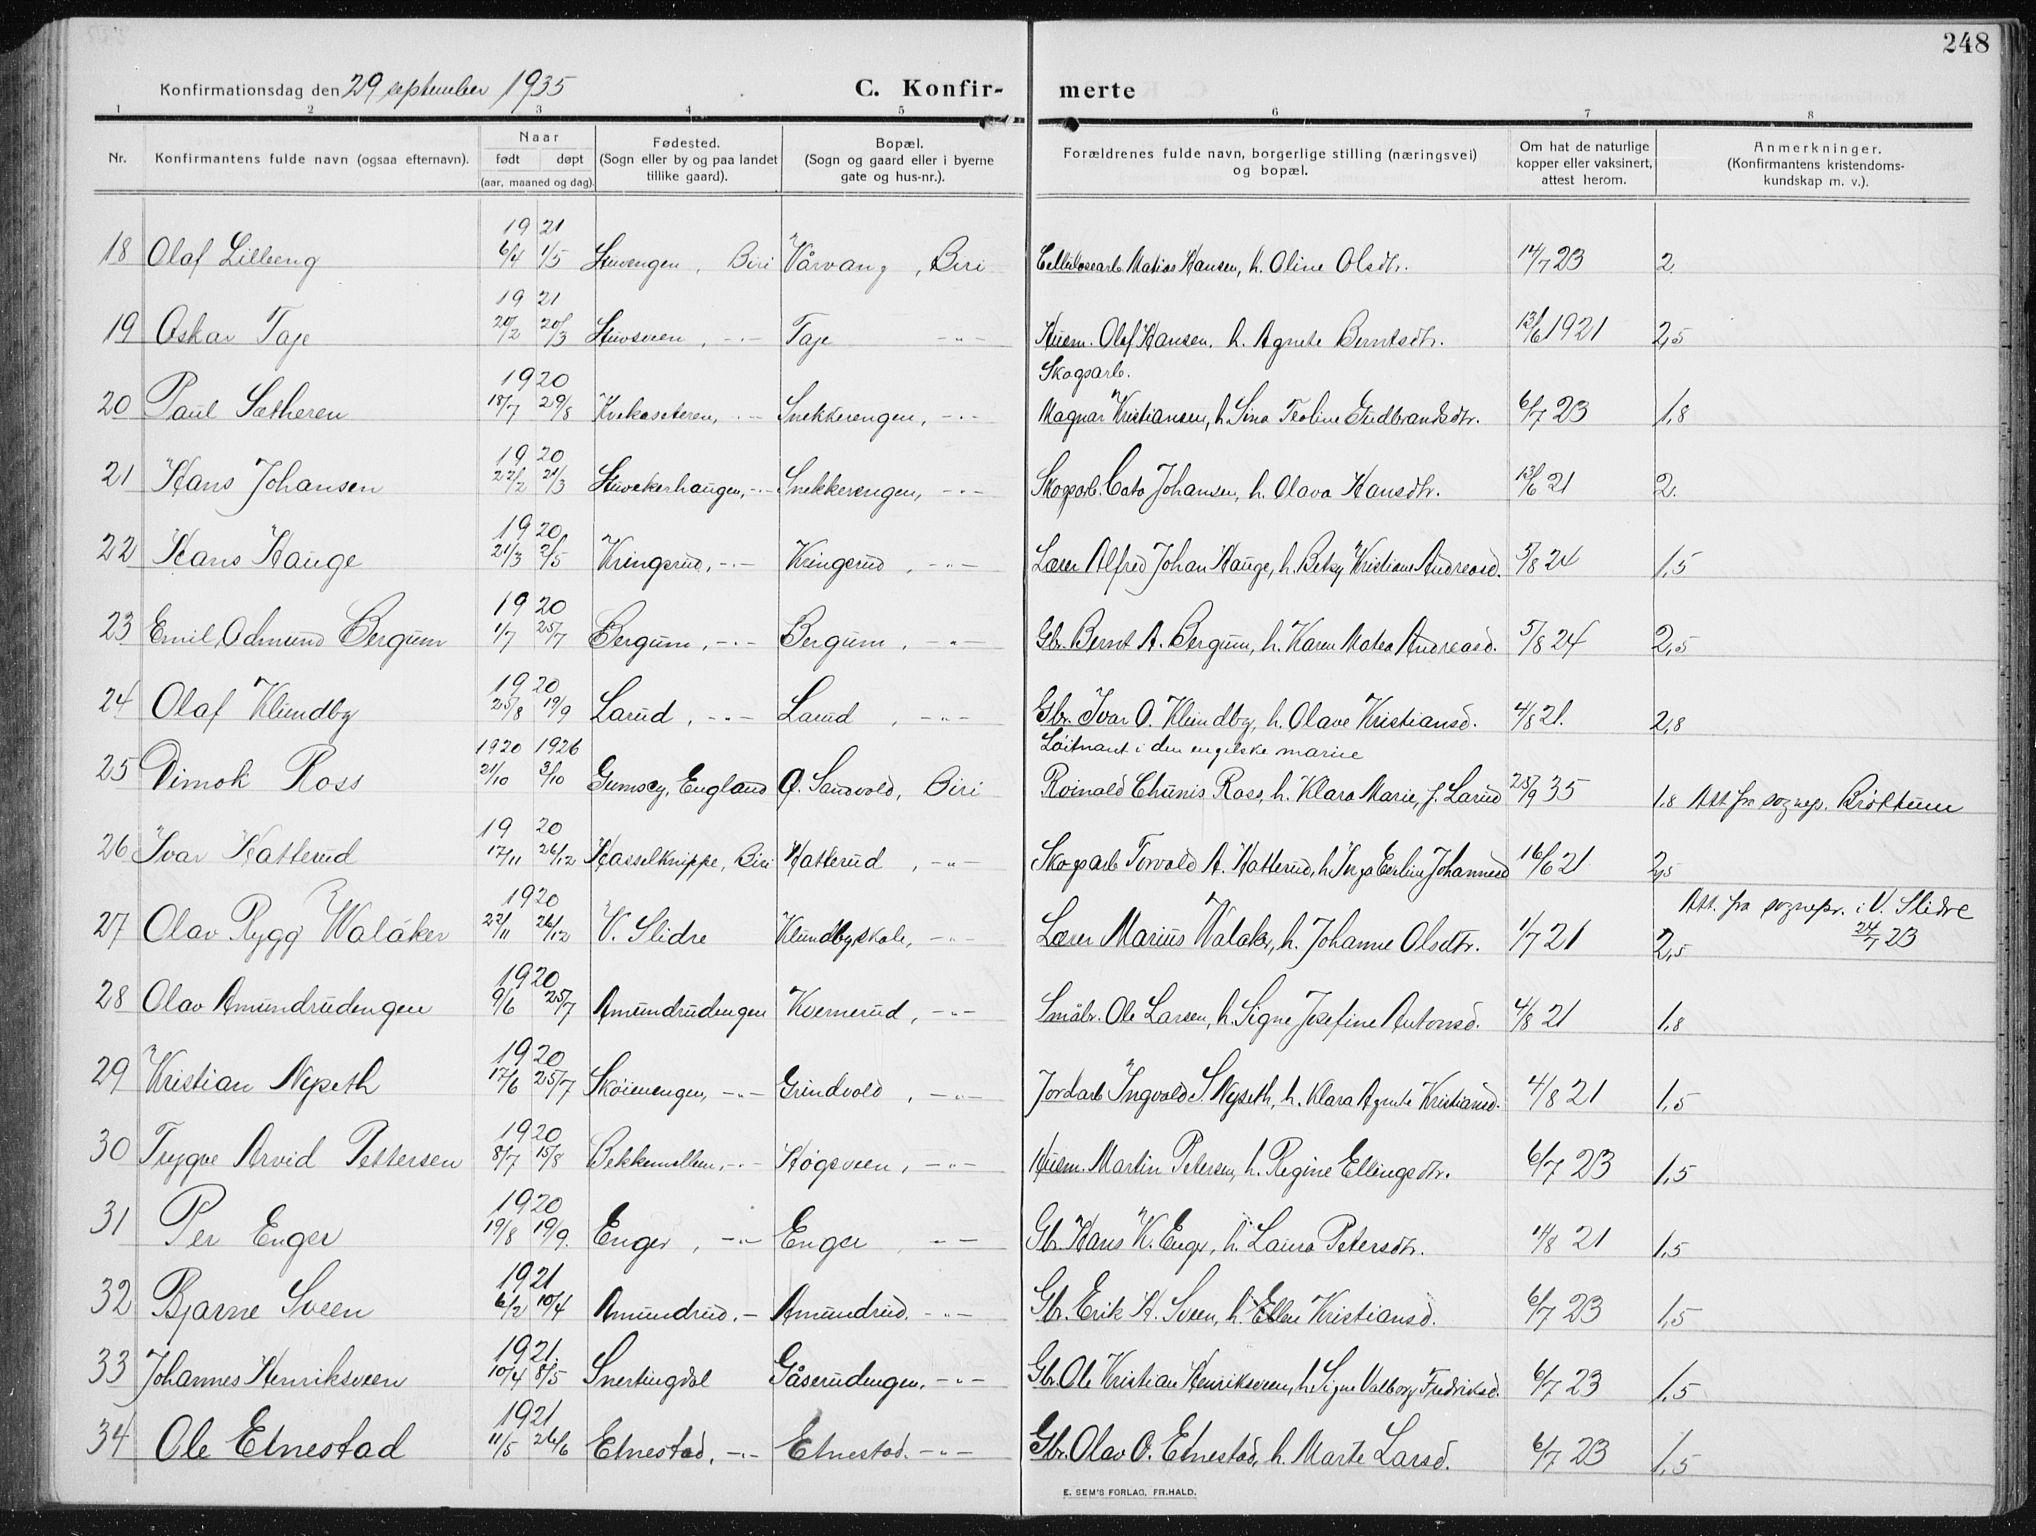 248
Konfirmationsdag den 29 september 1935 C. Konfir- merte
1 2 3 4 5 6 7 8
Nr. Konfirmantens fulde navn (ogsaa efternavn). Naar født døpt (aar, maaned og dag). Fødested. (Sogn eller by og paa landet tillike gaard). Bopæl. (Sogn og gaard eller i byerne gate og hus-nr.). Forældrenes fulde navn, borgerlige stilling (næringsvei) og bopæl. Om hat de naturlige kopper eller vaksinert, attest herom. Anmerkninger. (Konfirmantens kristendoms- kundskap m. v.).
19 21
18 Olaf Lilleeng 6/4 1/5 Stuvengen, Biri Vårvang, Biri Cellulosearb. Matias Hansen, h. Oline Olsdtr. 14/7 23 2
19 21
19 Oskar Taje 20/2 20/3 Stuvsveen, -"- Taje -"- Husm. Olaf Hansen, h. Agnete Berntsdtr. 13/6 1921 2,5
1920 Skogsarb.
20 Paul Sætheren 18/7 29/8 Kvekaseteren, -"- Snekkerengen, -"- Magnar Kristiansen, h. Sina Teoline Gudbrandsdtr. 6/7 23 1,8
1920
21 Hans Johansen 22/2 21/3 Stuvekerhaugen, -"- Snekkerengen, -"- Skogsarb. Cato Johansen, h. Olava Hansdtr. 13/6 21 2.
1920
22 Hans Hauge 21/3 2/5 Kringerud, -"- Kringerud, -"- Lærer Alfred Johan Hauge, h. Betsy Kristiane Andreasd. 5/8 24 1,5
1920
23 Emil Odmund Bergum 1/7 25/7 Bergum, -"- Bergum, -"- Gbr. Bernt A. Bergum, h. Karen Matea Andreasd. 5/8 24 2,5
1920
24 Olaf Klundby 25/8 19/9 Larud, -"- Larud, -"- Gbr. Ivar O. Klundby, h. Olave Kristiansd. 4/8 21. 2,8
1920 1926 Løitnant i den engelske marine
25 Dimok Ross 21/10 3/10 Gumsey, England Ø. Sandvold, Biri Roinald Chunis Ross, h. Klara Marie, f. Larud 25/9 35 1,8 Att. fra sognep. Brøttum
19 20
26 Ivar Hatterud 17/11 26/12 Hasselknippe, Biri Hatterud, -"- Skogsarb Torvald A. Hatterud, h. Inga Eerline Johannesd 16/6 21 2,5
1920 Att. fra sognepr. i V. Slidre
27 Olav Rygg Waláker 22/11 26/12 V. Slidre Klundby skole, -"- Lærer Marius Walaker, h. Johanne Olsdtr. 1/7 21 2,5 24/7 23
1920
28 Olav Amundrudengen 9/6 25/7 Amundrudengen Kvernerud, -"- Småbr. Ole Larsen, h. Signe Josefine Antonsd. 4/8 21 1,8
1920
29 Kristian Nyseth 17/6 25/7 Skøienengen, -"- Grindvold, -"- Jordarb Ingvald S. Nyseth, h. Klara Agnete Kristiansd. 4/8 21 1,5
1920
30 Trygve Arvid Pettersen 8/7 15/8 Bekkemellem, -"- Høgsveen, -"- Husm. Martin Petersen, h. Regine Ellingsdtr. 6/7 23 1,5
1920
31 Per Enger 19/8 19/9. Enger, -"- Enger, -"- Gbr. Hans K. Enger, h. Laura Petersdtr. 4/8 21 1,5
1921
32 Bjarne Sveen 6/2 10/4 Amundrud, -"- Amundrud. -"- Gbr. Erik H. Sveen, h. Ellen Kristiansd. 6/7 23 1,5
1921.
33 Johannes Henriksveen 10/4 8/5 Snertingdal Gåserudengen, -"- Gbr. Ole Kristian Henriksveen, h. Signe Valborg Fredriksd. 6/7 23 1,5
1921
34 Ole Etnestad 11/5 26/6 Etnestad, -"- Etnestad. -"- Gbr. Olav O. Etnestad, h. Marte Larsd. 6/7 23 1,5
E. SEM'S FORLAG, FR.HALD.